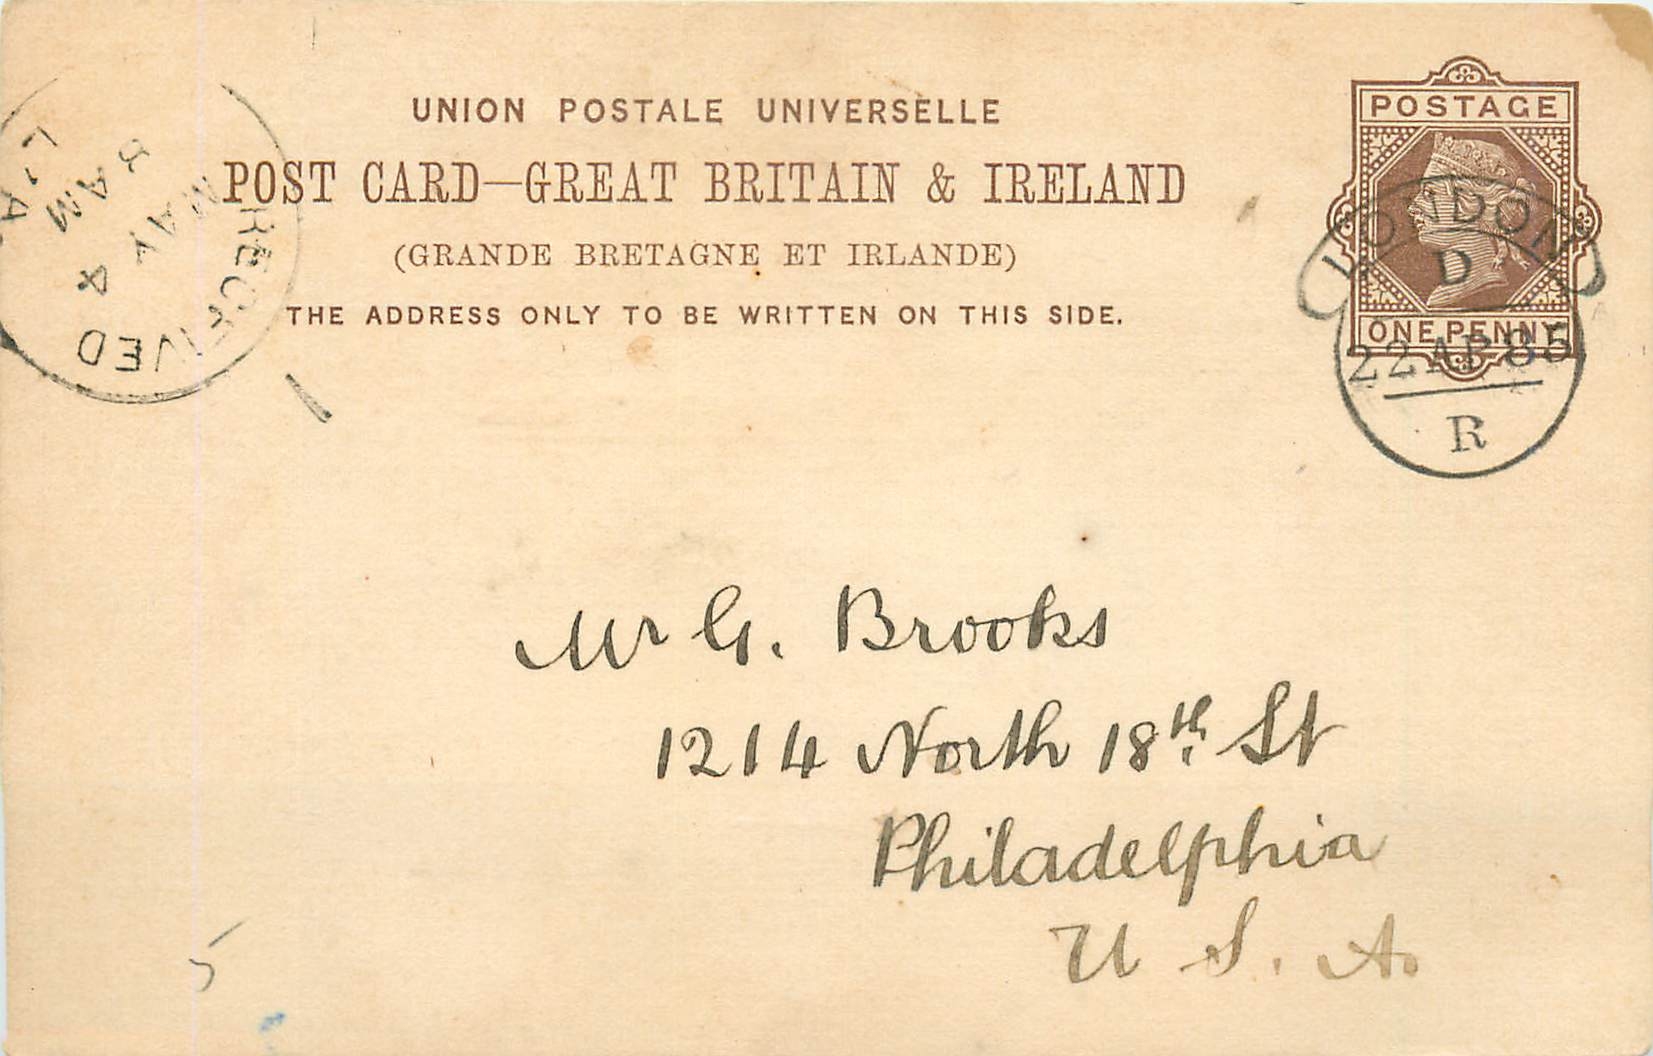 UNION POSTALE UNIVERSELLE
POST CARD—GREAT BRITAIN & IRELAND
(GRANDE BRETAGNE ET IRLANDE)
THE ADDRESS ONLY TO BE WRITTEN ON THIS SIDE.
POSTAGE
ONE PENNY
LONDON
D
22 AP 85
R
RECEIVED
MAY 4
8 AM
Mr G. Brooks
1214 North 18th St
Philadelphia
U. S. A.